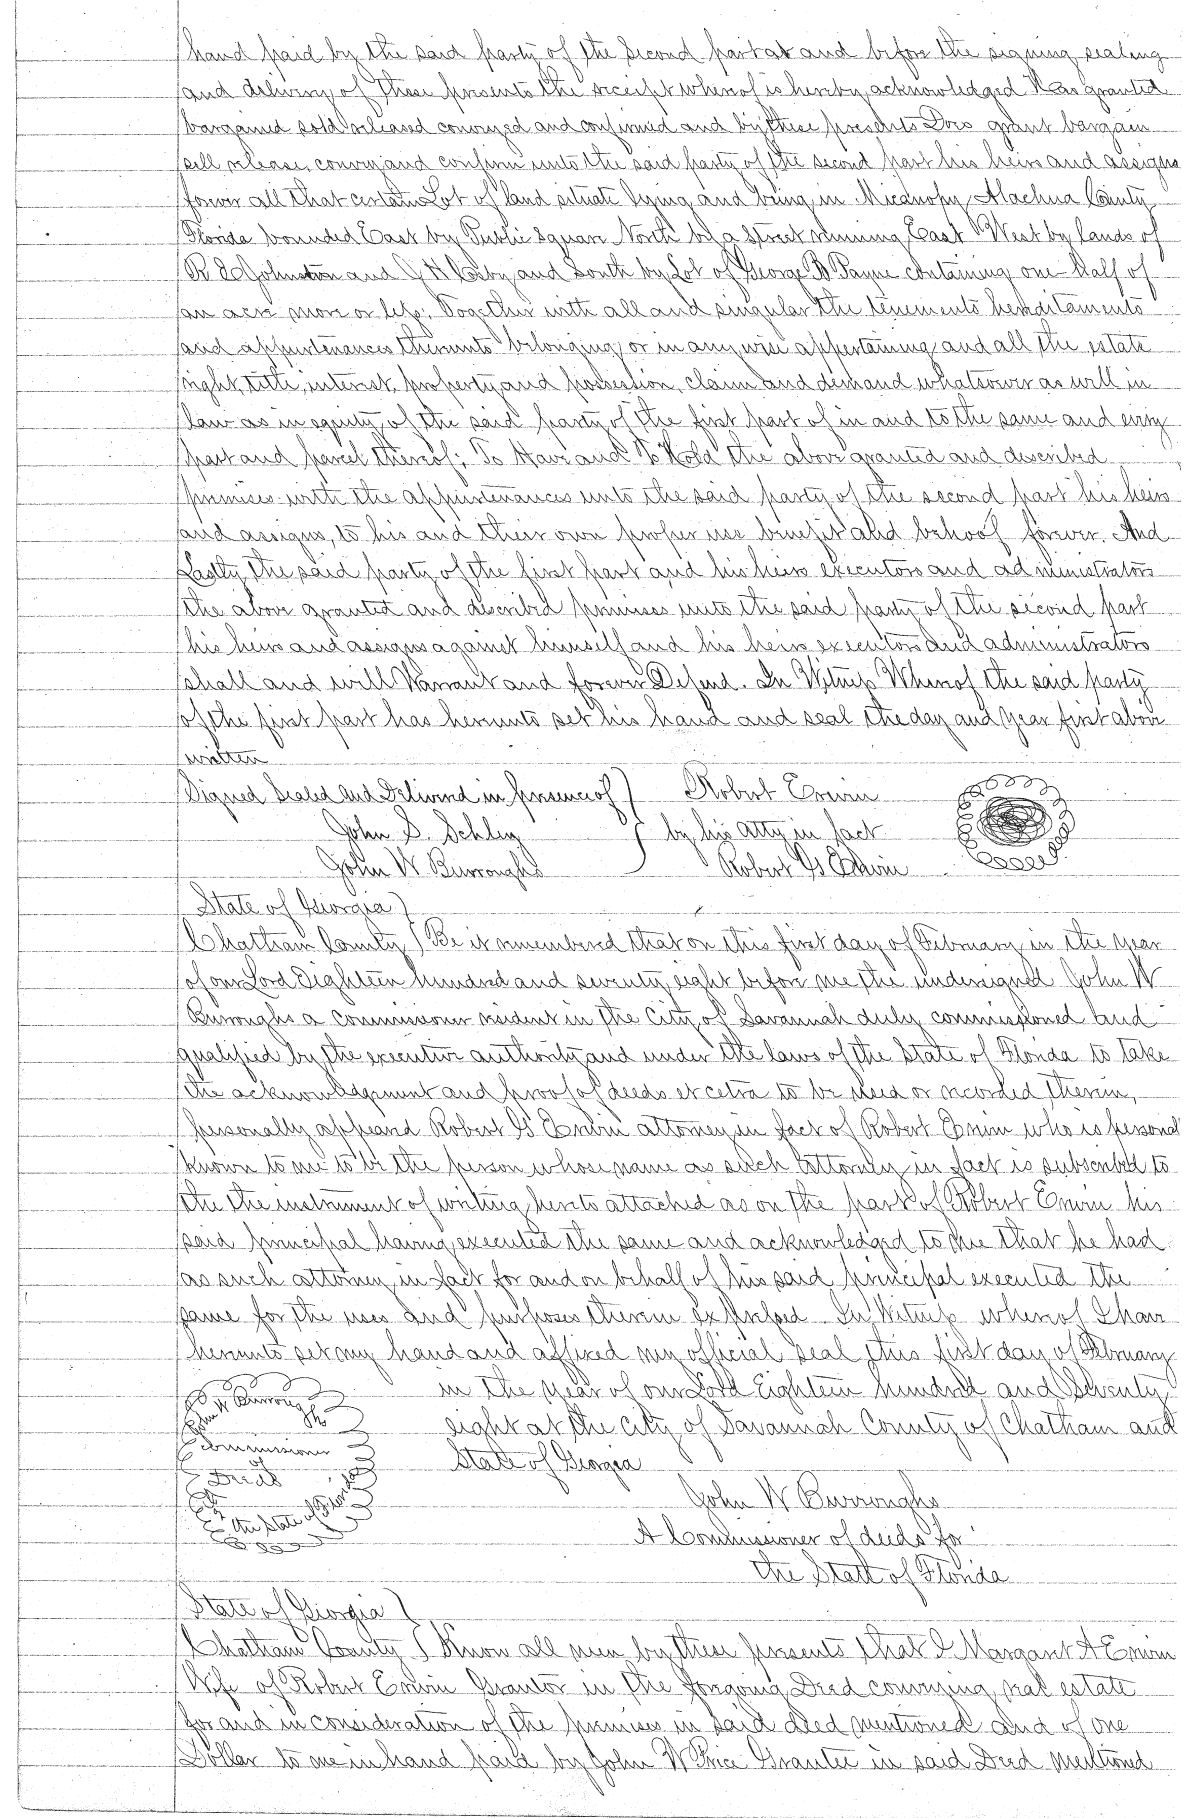 hand paid by the said party of the Second part at and before the signing sealing
and delivery of these presents the receipt whereof is hereby acknowledged Has granted
bargained sold released conveyed and confirmed and by these presents Does grant bargain
sell release, convey and confirm unto the said party of the second part his heirs and assigns
forever all that certain Lot of land situate lying and being in Micanopy Alachua County
Florida bounded East by Public Square North by a Street running East & West by lands of
R E Johnston and J H and South by Lot of George B Payne containing one half of
an acre more or less, Together with all and singular the tenements hereditaments
and appurtenances thereunto belonging or in any wise appertaining and all the estate
right, title, interest, property and possession, claim and demand whatsoever as well in
law as in equity of the said party of the first part of in and to the same and every
part and parcel thereof; To Have and To Hold the above granted and described
premises with the appurtenances unto the said party of the second part his heirs
and assigns, to his and their own proper use benefit and behoof forever. And
Lastly the said party of the first part and his heirs executors and administrators
the above granted and described premises unto the said party of the second part
his heirs and assigns against himself and his heirs executors and administrators
shall and will Warrant and forever Defend. In Witness Whereof the said party
of the first part has hereunto set his hand and seal the day and year first above
written
Signed Sealed and Delivered in presence of } Robert Erwin
John S. Schley } by his atty in fact
John W Burroughs Robert G Erwin
State of Georgia }
Chatham County } Be it remembered that on this first day of February in the year
of our Lord Eighteen hundred and seventy eight before me the undersigned John W
Burroughs a commissioner resident in the City of Savannah duly commissioned and
qualified by the executive authority and under the laws of the State of Florida to take
the acknowledgement and proof of deeds et cetra to be used or recorded therein,
personally appeared Robert G Erwin attorney in fact of Robert Erwin who is personal
known to me to be the person whose name as such attorney in fact is subscribed to
the the instrument of writing hereto attached as on the part of Robert Erwin his
said principal having executed the same and acknowledged to me that he had
as such attorney in fact for and on behalf of his said principal executed the
same for the uses and purposes therein expressed In Witness whereof I have
hereunto set my hand and affixed my official seal this first day of February
in the year of our Lord Eighteen hundred and Seventy
eight at the city of Savannah County of Chatham and
State of Georgia
John W Burroughs
Commissioner
of
Deeds
for
the State of Florida
John W Burroughs
A Commissioner of deeds for
the State of Florida
State of Georgia }
Chatham County } Know all men by these presents that I Margaret A Erwin
Wife of Robert Erwin Grantor in the foregoing Deed conveying real estate
for and in consideration of the premises in said deed mentioned and of one
Dollar to me in hand paid by John W Price Grantee in said Deed mentioned